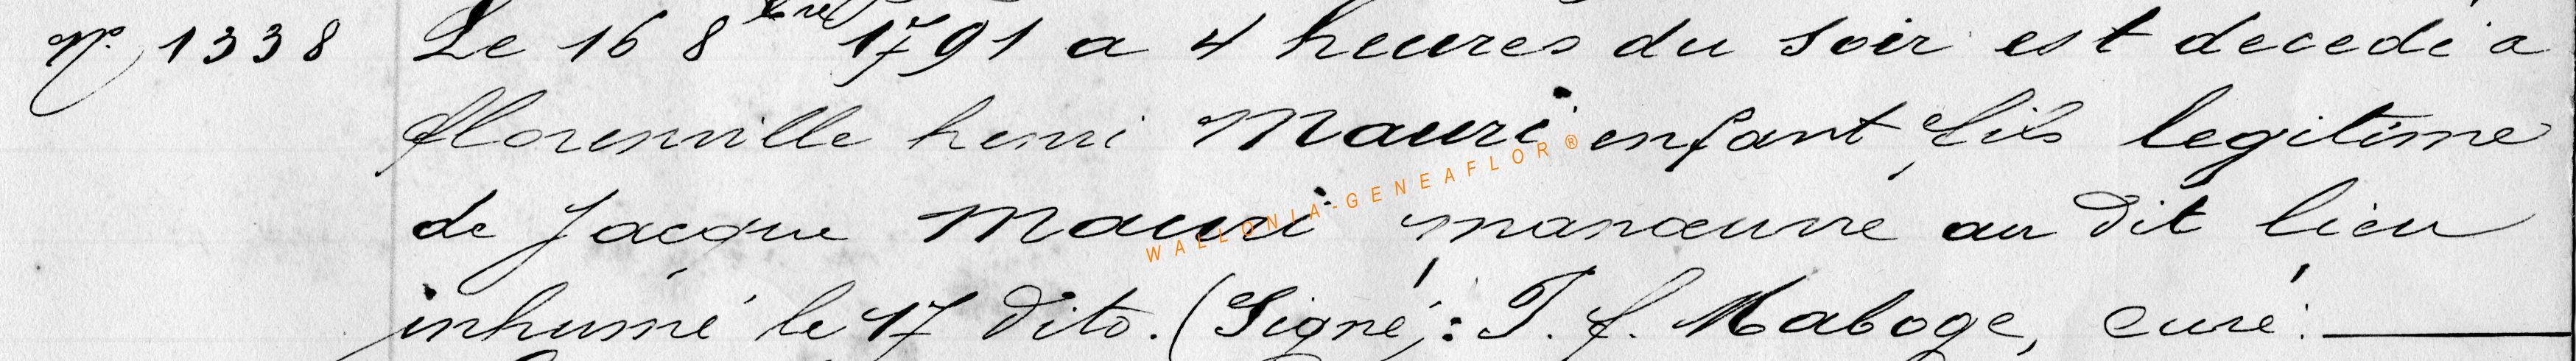 N° 1338 Le 16 8bre 1791 a 4 heures du soir est decedé a
florenville henri Mauri enfant fils legitime
de Jacque Mauri manœuvre au dit lieu
inhumé le 17 dito. (Signé): T. f. Maboge, curé.
WALLONIA-GENEAFLOR®